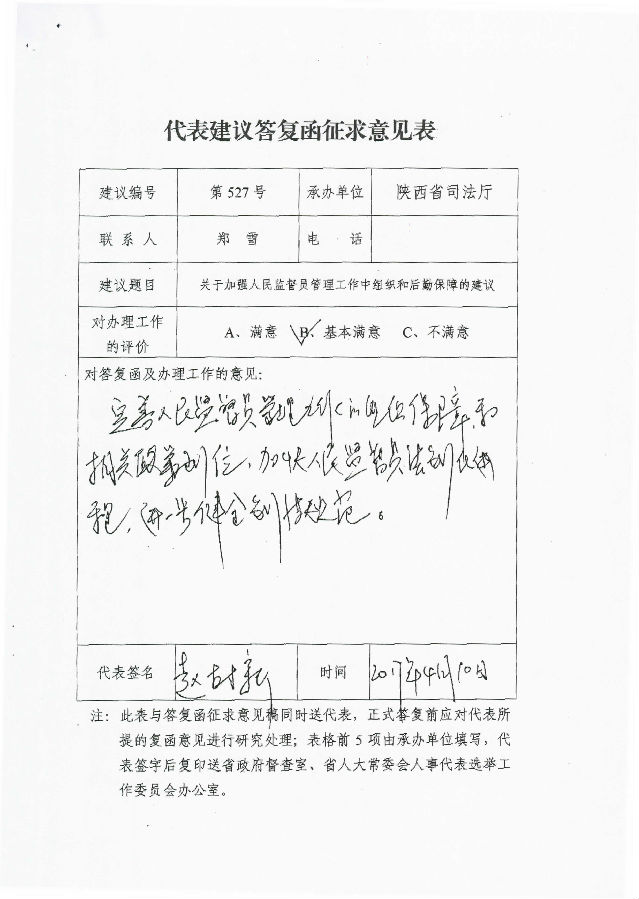 代表建议答复函征求意见表
建议编号 第 527 号 承办单位 陕西省司法厅
联系人 郑雪 电话
建议题目 关于加强人民监督员管理工作中组织和后勤保障的建议
对办理工作的评价 A、满意 B、基本满意 C、不满意
对答复函及办理工作的意见:
完善人民监督员管理 保障,和
相关政策到位,加快人民监督员法制化进
程,进一步健全制
代表签名 赵 时间 2017年4月10日
注: 此表与答复函征求意见稿同时送代表,正式答复前应对代表所
提的复函意见进行研究处理;表格前 5 项由承办单位填写,代
表签字后复印送省政府督查室、省人大常委会人事代表选举工
作委员会办公室。